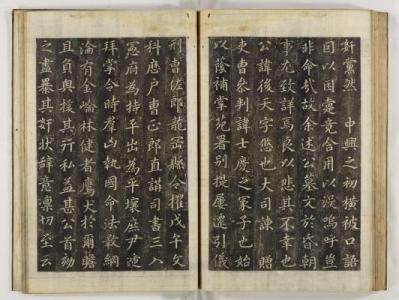 奸黨然 中興之初橫被口語
因以困竟含用以沒嗚呼豈
非命哉故余述公墓文於昏朝
事尤致詳焉良以悲其不幸也
公諱後天字也大司諫 贈
吏曹參判諱士慶之冢子也始
以蔭補掌苑署別提屢遷引儀
刑曹佐郎龍崗縣令擢戊午文
科歷戶曹正郎直講司書三入
憲府為持平出為平壤庶尹遞
拜掌令時群凶執國命法斁綱
淪有金林健者鷹犬於爾瞻
且負奧援其行私益甚公首劾
之盡暴其奸狀辭意凜切至云